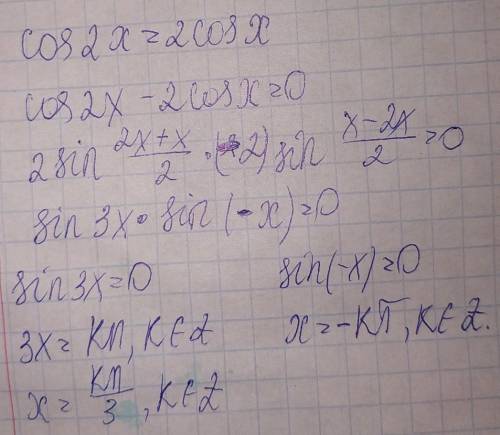 cos2x=2cosx
cos2x-2cosx=0
2sin (2x+x)/2 · (-2) sin (x-2x)/2 =0
sin3x·sin(-x)=0
sin3x=0 sin(-x)=0
3x=Kπ, K∈Z x=-Kπ, K∈Z.
x= Kπ/3, K∈Z